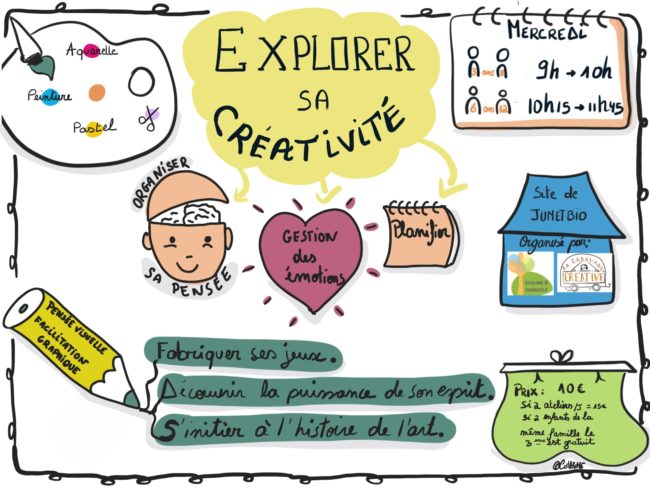 Aquarelle
Peinture
Pastel
EXPLORER
SA
CRÉATIVITÉ
MERCREDI
3 ans 6
9h → 10h
6 ans 12
10h15 → 11h45
ORGANISER
SA PENSÉE
GESTION
des
émotions
Planifier
Site de
JUMETBIO
Organisé par:
LA CARAVANE
CREATIVE
PENSÉE VISUELLE
FACILITATION
GRAPHIQUE
Fabriquer ses jeux.
Découvrir la puissance de son esprit.
S'initier à l'histoire de l'art.
PRIX: 10€
Si 2 ateliers/J = 15€
Si 2 enfants de la
même famille le
3ème est gratuit